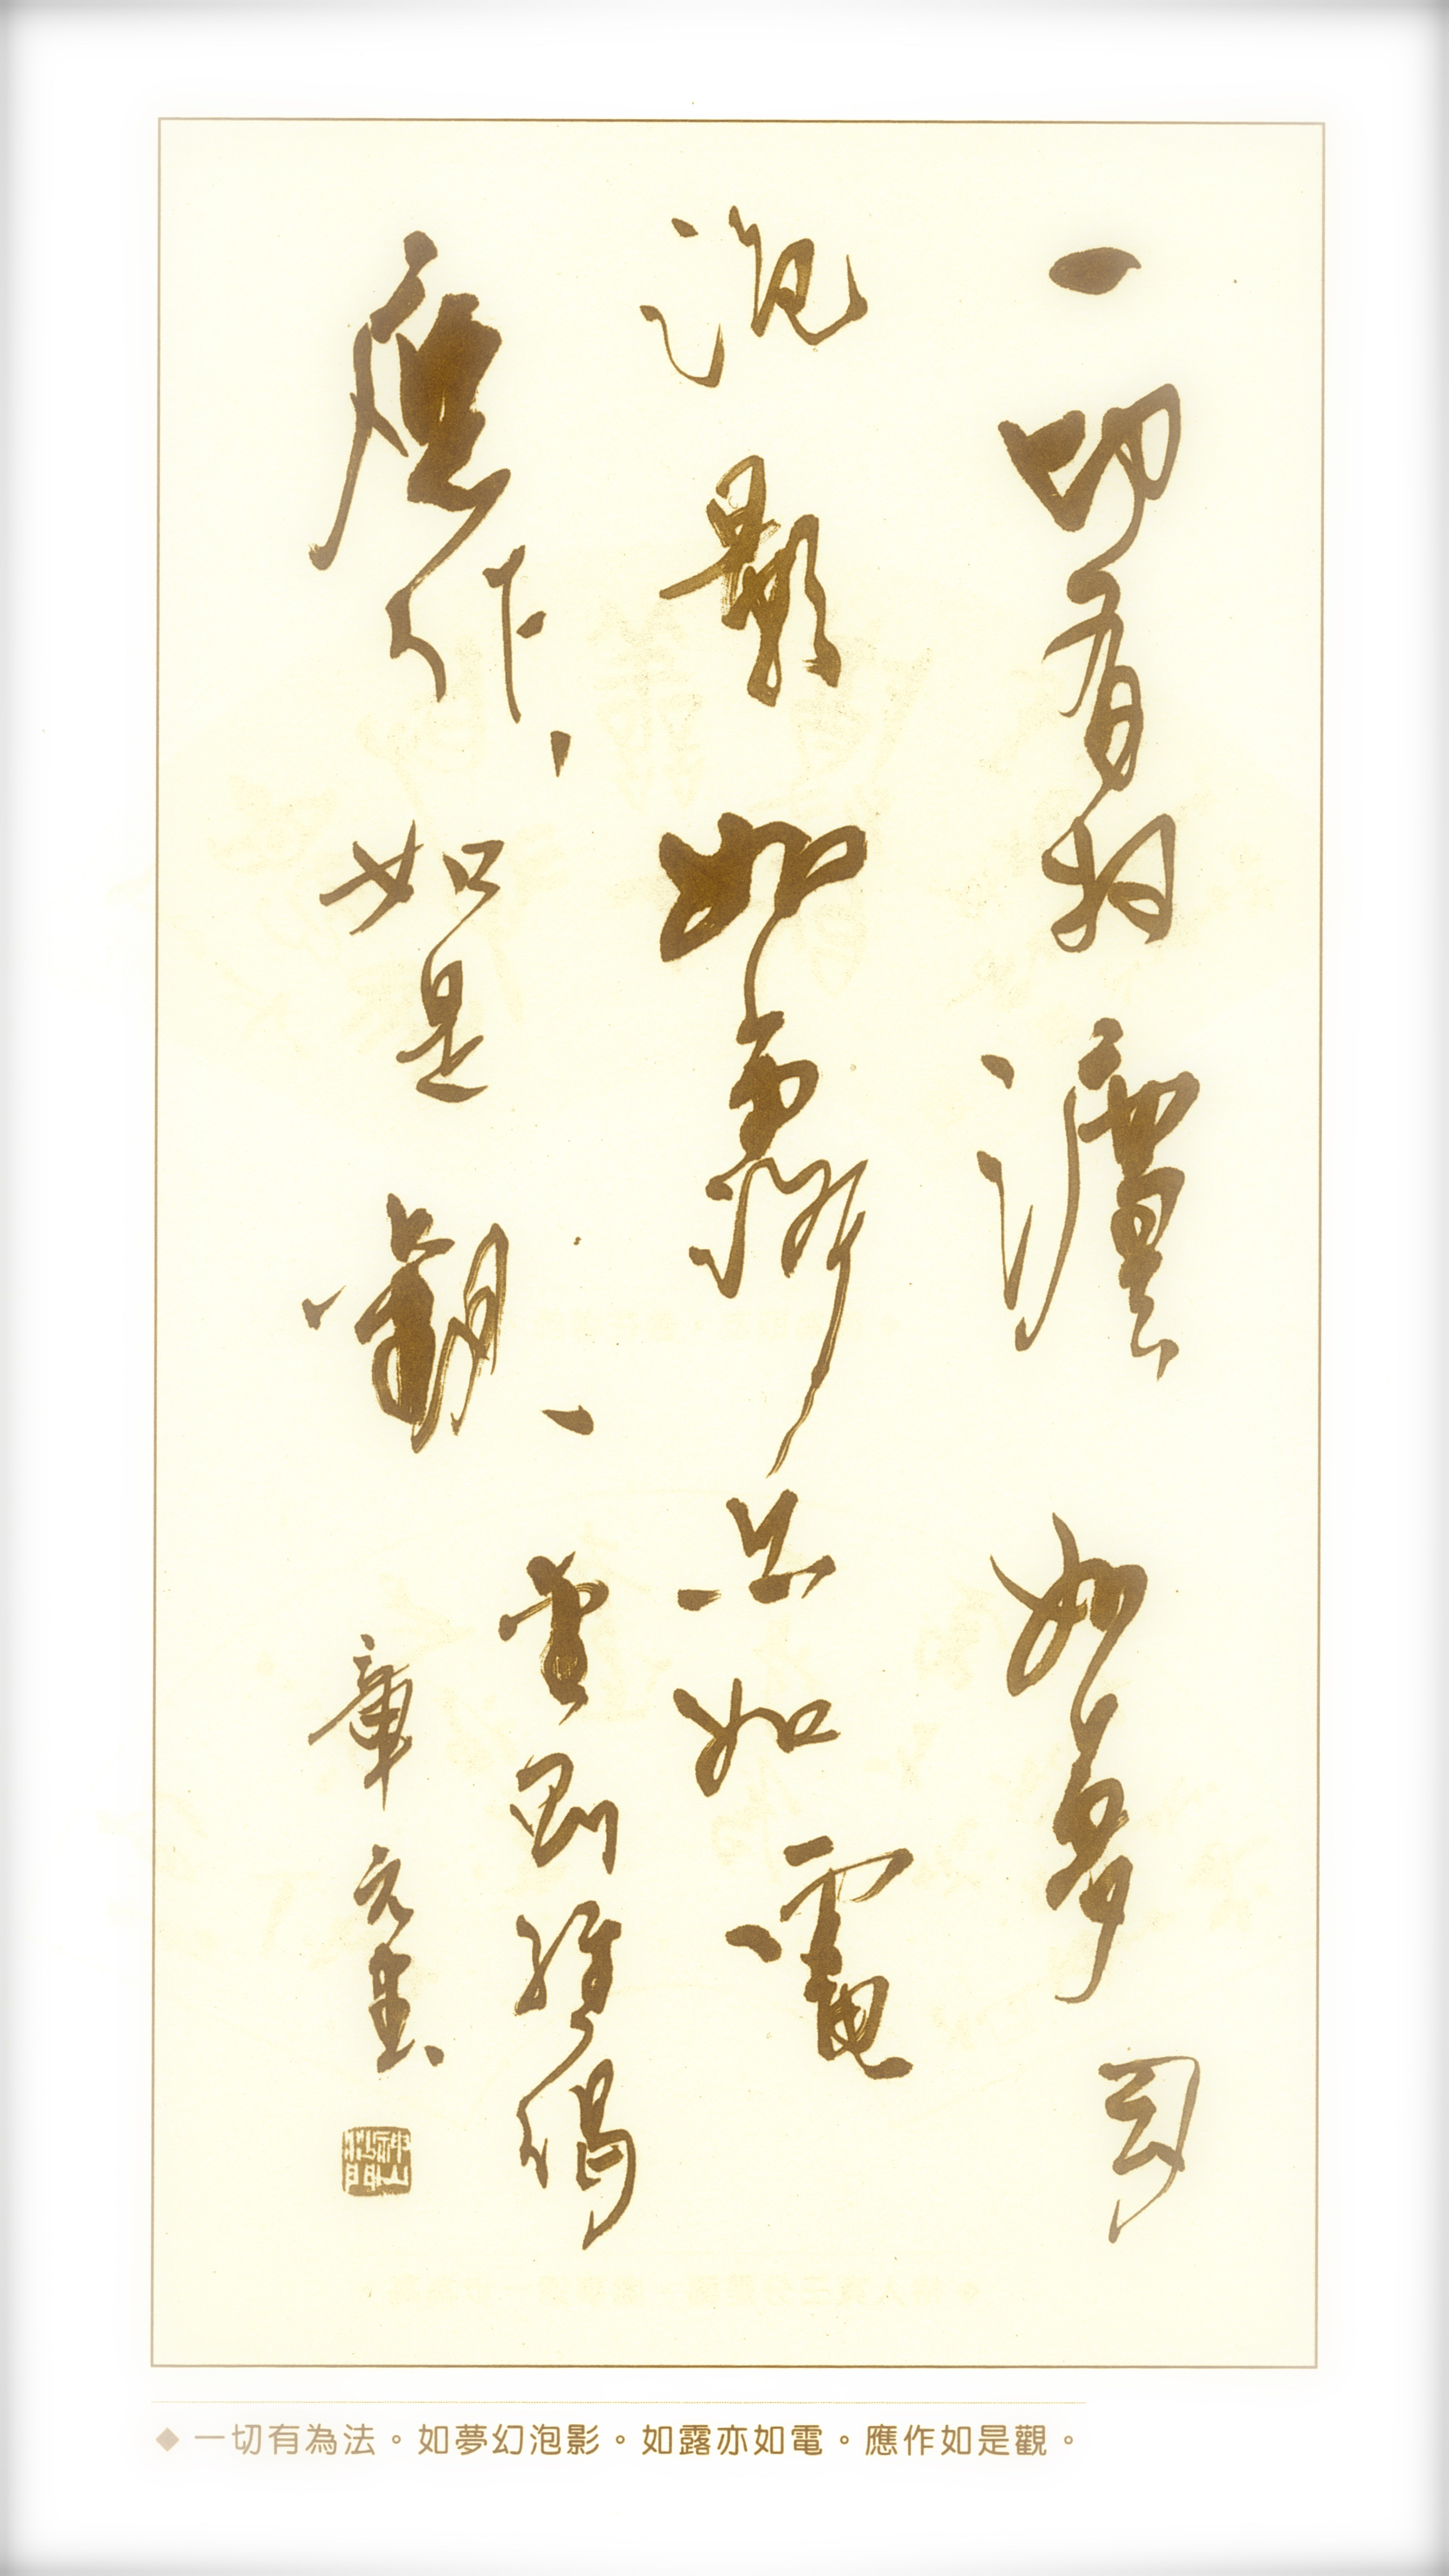 一切有为灋如夢幻
泡影如露亦如電
應作如是觀
金剛經偈
章元
◆ 一切有為法。如夢幻泡影。如露亦如電。應作如是觀。